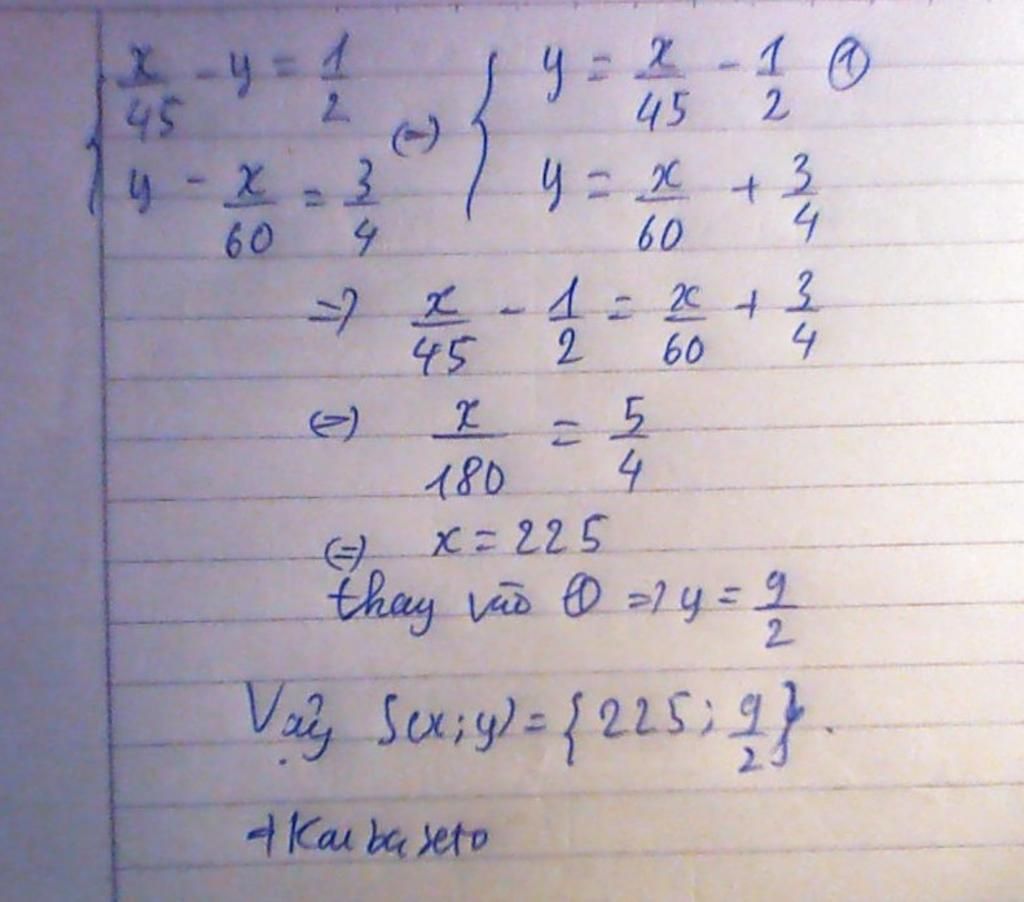 x/45 - y = 1/2 (=) y = x/45 - 1/2 ①
y - x/60 = 3/4 y = x/60 + 3/4
=> x/45 - 1/2 = x/60 + 3/4
(=) x/180 = 5/4
(=) x = 225
thay vào ① => y = 9/2
Vậy S(x;y) = {225; 9/2}.
Kaibaseto